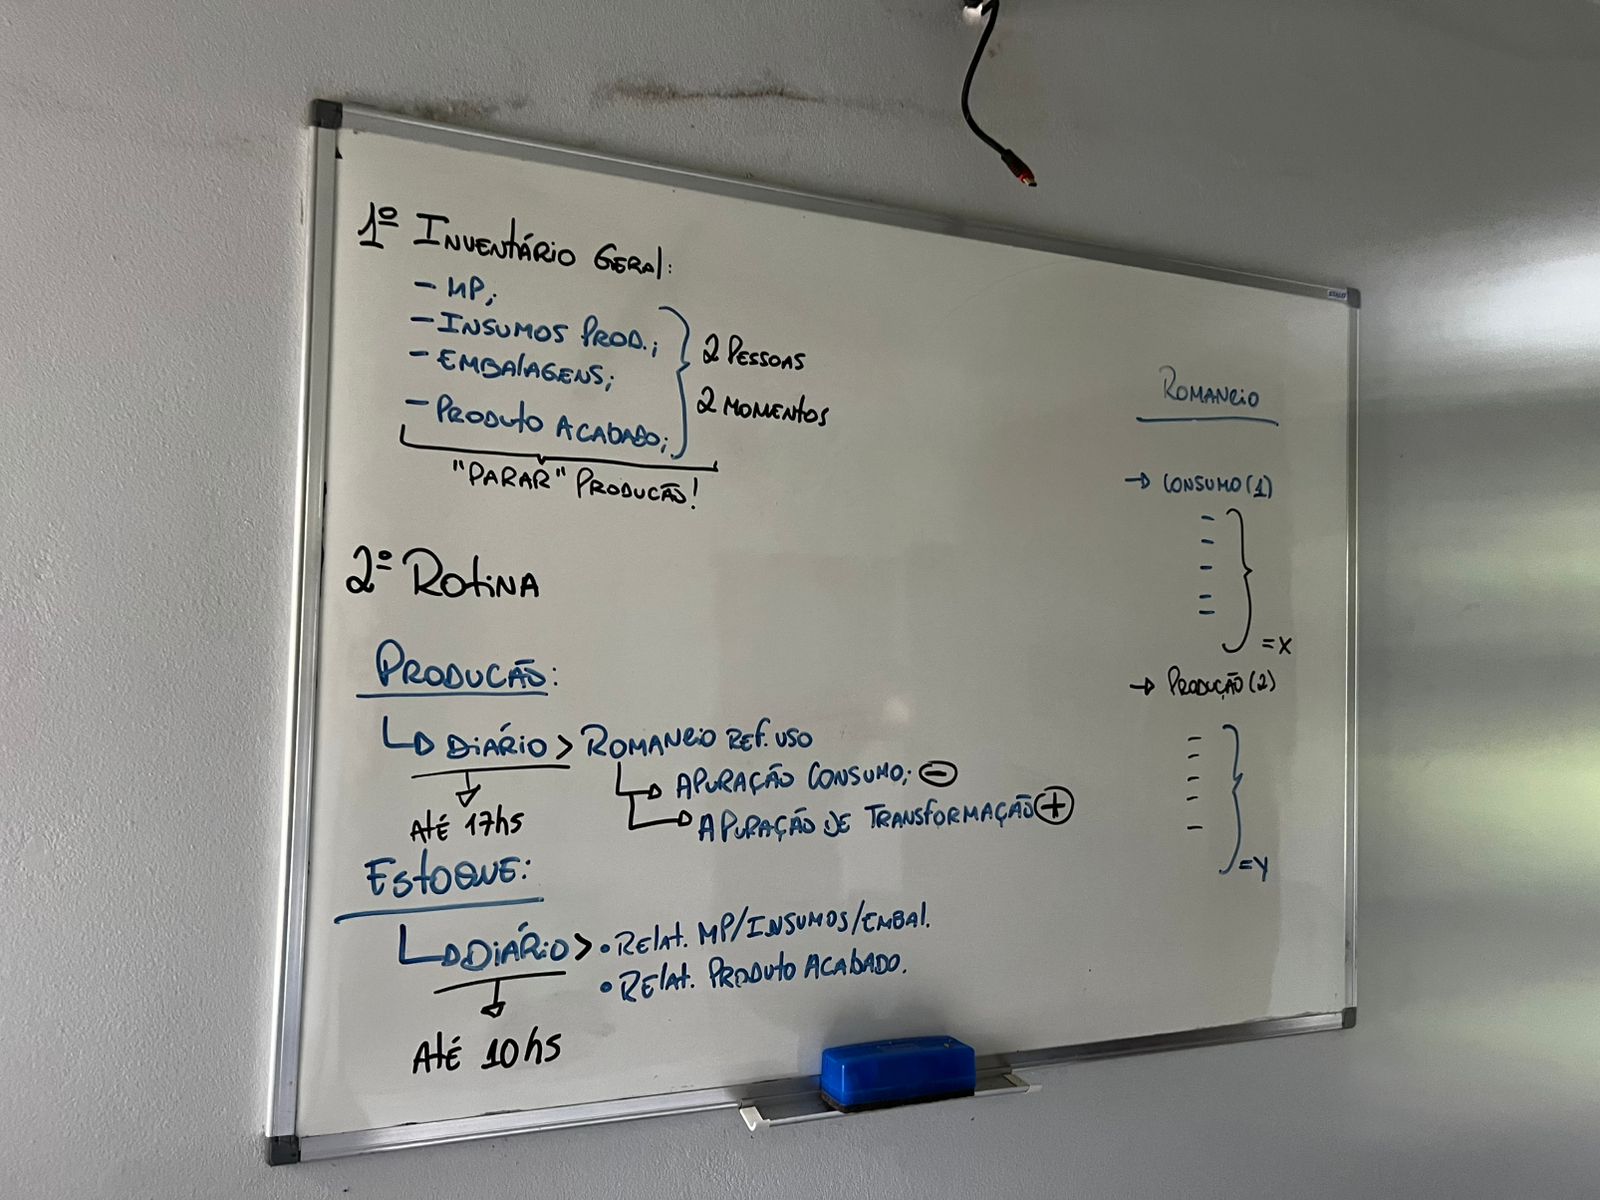 1º INVENTÁRIO GERAL:
- MP;
- INSUMOS PROD.;
- EMBALAGENS;
- PRODUTO ACABADO;
2 PESSOAS
2 MOMENTOS
"PARAR" PRODUCÃO!
2º ROTINA
PRODUCÃO:
DIÁRIO > ROMANEIO REF. USO
APURAÇÃO CONSUMO; -
APURAÇÃO DE TRANSFORMAÇÃO +
ATÉ 17hs
ESTOQUE:
DIÁRIO > • RELAT. MP/INSUMOS/EMBAL.
• RELAT. PRODUTO ACABADO.
ATÉ 10hs
ROMANEIO
→ CONSUMO (1)
= X
→ PRODUÇÃO (2)
= Y